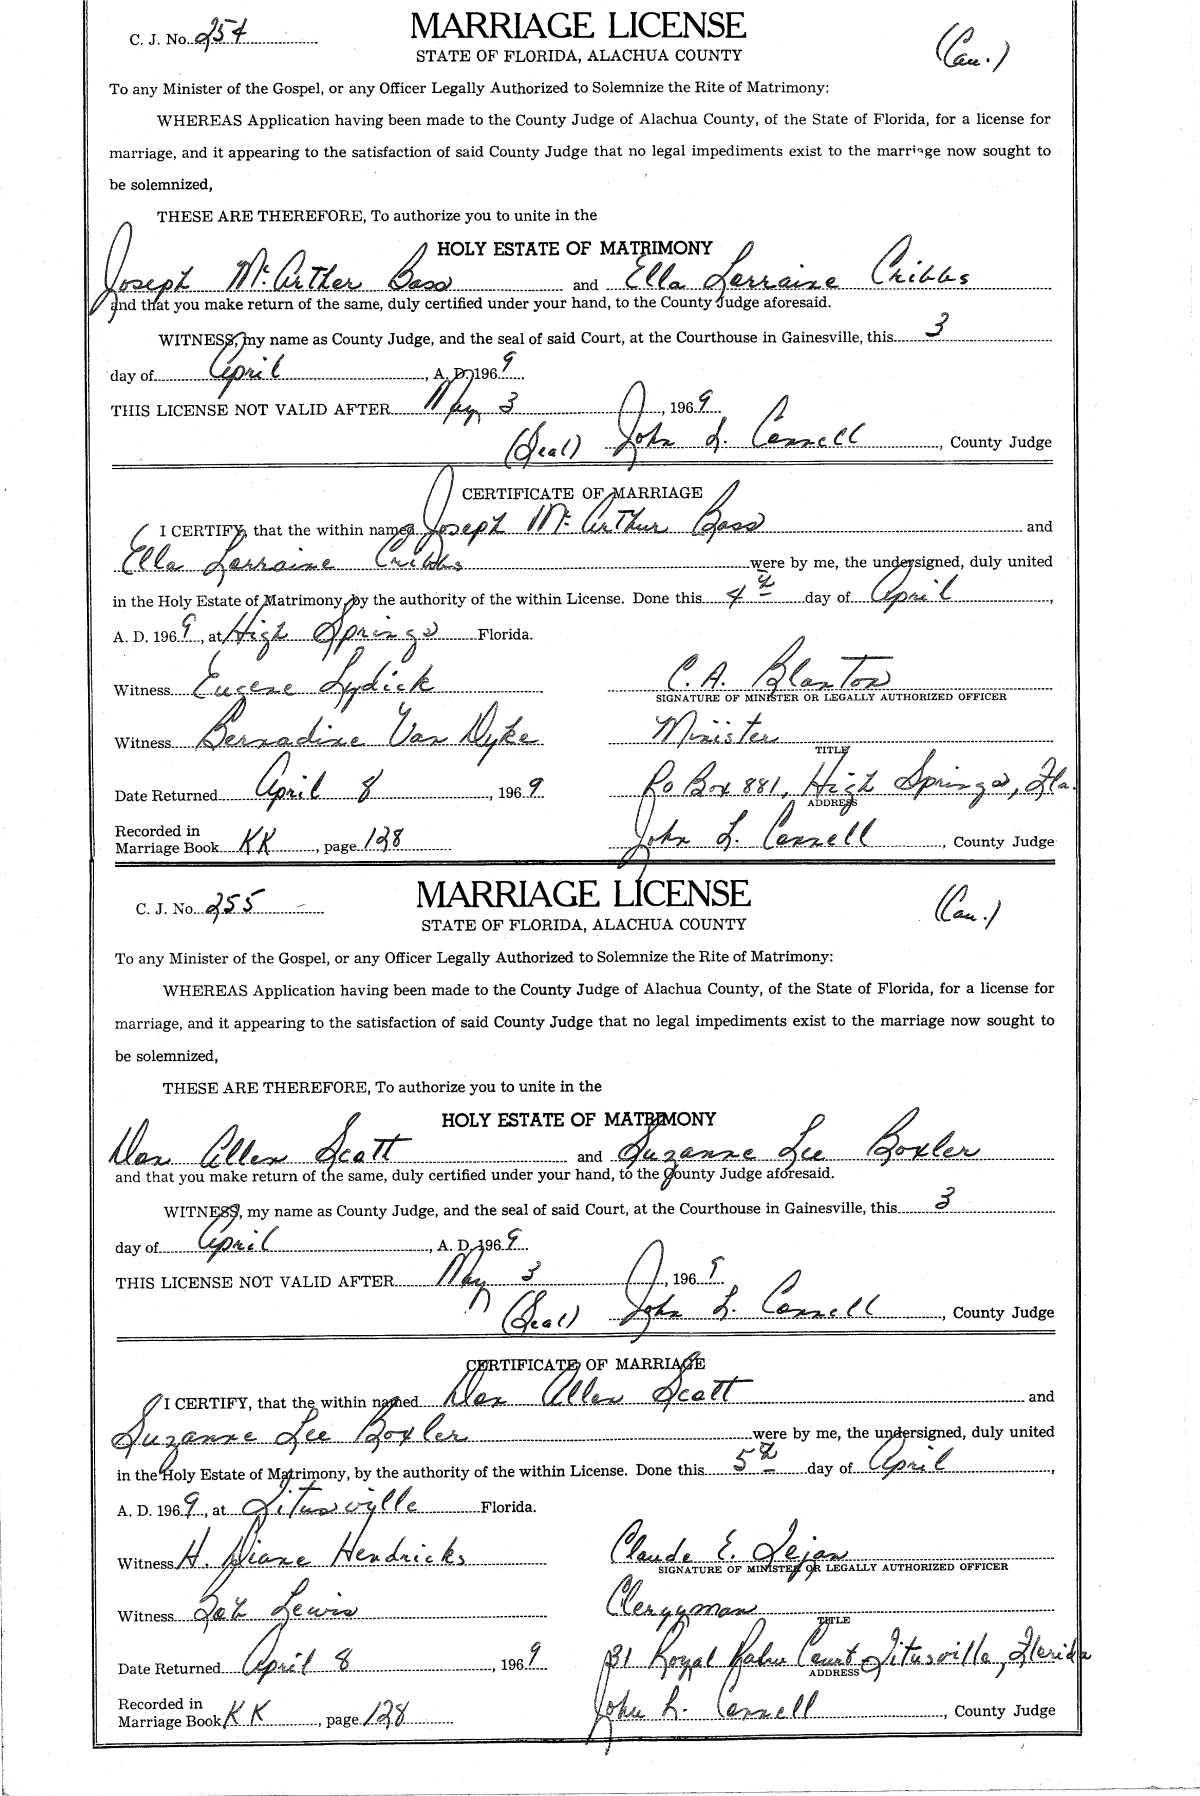 C. J. No. 254
MARRIAGE LICENSE
STATE OF FLORIDA, ALACHUA COUNTY
(Cau.)
To any Minister of the Gospel, or any Officer Legally Authorized to Solemnize the Rite of Matrimony:
WHEREAS Application having been made to the County Judge of Alachua County, of the State of Florida, for a license for
marriage, and it appearing to the satisfaction of said County Judge that no legal impediments exist to the marriage now sought to
be solemnized,
THESE ARE THEREFORE, To authorize you to unite in the
HOLY ESTATE OF MATRIMONY
Joseph McArther Bass and Ella Lorraine Cribbs
and that you make return of the same, duly certified under your hand, to the County Judge aforesaid.
WITNESS, my name as County Judge, and the seal of said Court, at the Courthouse in Gainesville, this 3
day of April, A. D. 1969
THIS LICENSE NOT VALID AFTER May 3, 1969
(Seal) John L. Connell, County Judge
CERTIFICATE OF MARRIAGE
I CERTIFY, that the within named Joseph McArthur Bass and
Ella Lorraine Cribbs were by me, the undersigned, duly united
in the Holy Estate of Matrimony, by the authority of the within License. Done this 4th day of April,
A. D. 1969, at High Springs Florida.
Witness Eugene Lydick C. A. Blanton
SIGNATURE OF MINISTER OR LEGALLY AUTHORIZED OFFICER
Witness Bernadine Van Dyke Minister
TITLE
Date Returned April 8, 1969 Po Box 881, High Springs, Fla.
ADDRESS
Recorded in
Marriage Book KK, page 128 John L. Connell, County Judge
C. J. No. 255
MARRIAGE LICENSE
STATE OF FLORIDA, ALACHUA COUNTY
(Cau.)
To any Minister of the Gospel, or any Officer Legally Authorized to Solemnize the Rite of Matrimony:
WHEREAS Application having been made to the County Judge of Alachua County, of the State of Florida, for a license for
marriage, and it appearing to the satisfaction of said County Judge that no legal impediments exist to the marriage now sought to
be solemnized,
THESE ARE THEREFORE, To authorize you to unite in the
HOLY ESTATE OF MATRIMONY
Don Allen Scott and Suzanne Lee Boxler
and that you make return of the same, duly certified under your hand, to the County Judge aforesaid.
WITNESS, my name as County Judge, and the seal of said Court, at the Courthouse in Gainesville, this 3
day of April, A. D. 1969
THIS LICENSE NOT VALID AFTER May 3, 1969
(Seal) John L. Connell, County Judge
CERTIFICATE OF MARRIAGE
I CERTIFY, that the within named Don Allen Scott and
Suzanne Lee Boxler were by me, the undersigned, duly united
in the Holy Estate of Matrimony, by the authority of the within License. Done this 5th day of April,
A. D. 1969, at Titusville Florida.
Witness H. Diane Hendricks Claude E. Tejan
SIGNATURE OF MINISTER OR LEGALLY AUTHORIZED OFFICER
Witness Lewis Clergyman
TITLE
Date Returned April 8, 1969 31 Royal Court Titusville, Florida
ADDRESS
Recorded in
Marriage Book KK, page 128 John L. Connell, County Judge